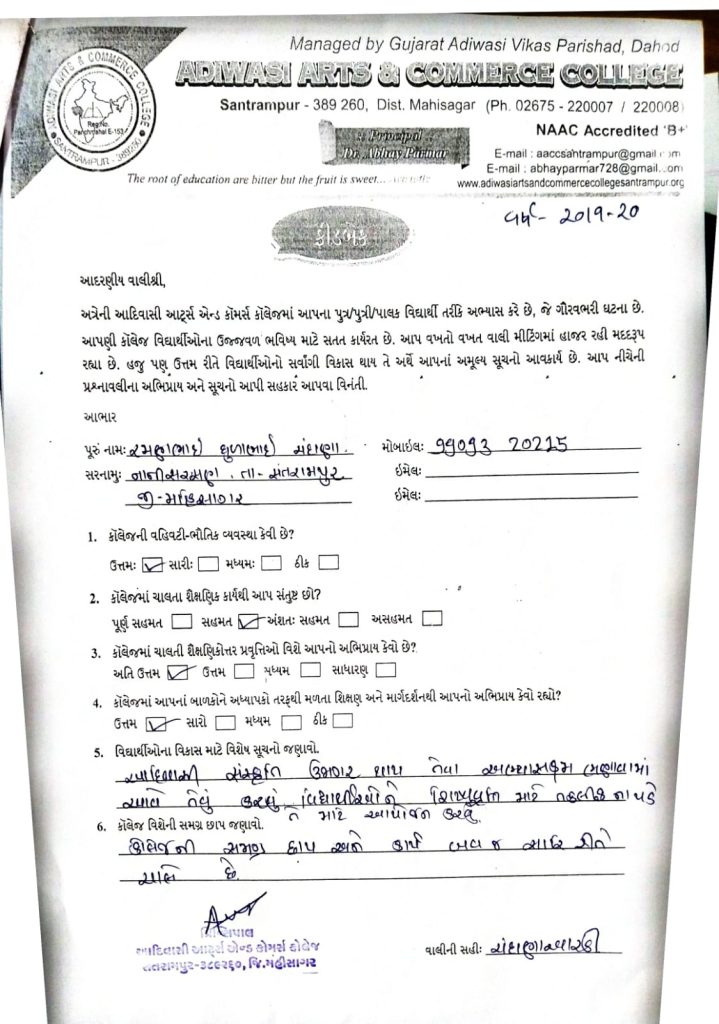 Managed by Gujarat Adiwasi Vikas Parishad, Dahod
ADIWASI ARTS & COMMERCE COLLEGE
Santrampur - 389 260, Dist. Mahisagar (Ph. 02675 - 220007 / 220008)
ADIWASI ARTS & COMMERCE COLLEGE
Reg.No.
Panchmahal E-153
SANTRAMPUR - 389260
:: Principal ::
Dr. Abhay Parmar
NAAC Accredited 'B+'
E-mail : aaccsantrampur@gmail.com
E-mail : abhayparmar728@gmail.com
The root of education are bitter but the fruit is sweet...
www.adiwasiartsandcommercecollegesantrampur.org
વર્ષ- 2019-20
ફીડબેક
આદરણીય વાલીશ્રી,
અત્રેની આદિવાસી આર્ટ્સ એન્ડ કૉમર્સ કૉલેજમાં આપના પુત્ર/પુત્રી/પાલક વિદ્યાર્થી તરીકે અભ્યાસ કરે છે, જે ગૌરવભરી ઘટના છે.
આપણી કૉલેજ વિદ્યાર્થીઓના ઉજ્જવળ ભવિષ્ય માટે સતત કાર્યરત છે. આપ વખતો વખત વાલી મીટિંગમાં હાજર રહી મદદરૂપ
રહ્યા છે. હજુ પણ ઉત્તમ રીતે વિદ્યાર્થીઓનો સર્વાંગી વિકાસ થાય તે અર્થે આપનાં અમૂલ્ય સૂચનો આવકાર્ય છે. આપ નીચેની
પ્રશ્નાવલીના અભિપ્રાય અને સૂચનો આપી સહકાર આપવા વિનંતી.
આભાર
પૂરું નામઃ રમણભાઈ ધુળાભાઈ સંગાણા. મોબાઈલઃ 99093 20215
સરનામુઃ નાનીસરસણ. તા- સંતરામપુર ઈમેલઃ
જી- મહિસાગર ઈમેલઃ
1. કૉલેજની વહિવટી-ભૌતિક વ્યવસ્થા કેવી છે?
ઉત્તમઃ ✓ સારીઃ મધ્યમઃ ઠીક
2. કૉલેજમાં ચાલતા શૈક્ષણિક કાર્યથી આપ સંતુષ્ટ છો?
પૂર્ણ સહમત સહમત ✓ અંશતઃ સહમત અસહમત
3. કૉલેજમાં ચાલતી શૈક્ષણિકોત્તર પ્રવૃત્તિઓ વિશે આપનો અભિપ્રાય કેવો છે?
અતિ ઉત્તમ ✓ ઉત્તમ મધ્યમ સાધારણ
4. કૉલેજમાં આપનાં બાળકોને અધ્યાપકો તરફથી મળતા શિક્ષણ અને માર્ગદર્શનથી આપનો અભિપ્રાય કેવો રહ્યો?
ઉત્તમ ✓ સારો મધ્યમ ઠીક
5. વિદ્યાર્થીઓના વિકાસ માટે વિશેષ સૂચનો જણાવો.
આદિવાસી સંસ્કૃતિ ઉજાગર થાય તેવા અભ્યાસક્રમ ભણાવવામાં
આવે તેવું કરવું. વિદ્યાર્થીઓને શિષ્યવૃત્તિ માટે તકલીફ ના પડે
તે માટે આયોજન કરવું.
6. કૉલેજ વિશેની સમગ્ર છાપ જણાવો.
કોલેજની સમગ્ર છાપ અને કાર્ય ખુબ જ સારિ રીતે
ચાલે છે.
પ્રિન્સિપાલ
આદિવાસી આર્ટ્સ એન્ડ કોમર્સ કોલેજ
સંતરામપુર-૩૮૯૨૬૦, જિ.મહીસાગર
વાલીની સહીઃ